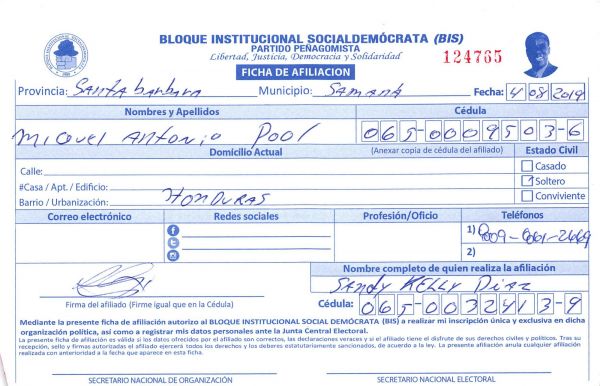 BLOQUE INSTITUCIONAL SOCIALDEMÓCRATA (BIS)
PARTIDO PEÑAGOMISTA
Libertad, Justicia, Democracia y Solidaridad
124765
FICHA DE AFILIACION
Provincia: Santa barbara Municipio: SAMANÁ Fecha: 4/08/2019
Nombres y Apellidos Cédula
Miguel Antonio Pool 065-0009503-6
Domicilio Actual (Anexar copia de cédula del afiliado) Estado Civil
Calle: Casado
#Casa / Apt. / Edificio: Soltero
Barrio / Urbanización: HONDURAS Conviviente
Correo electrónico Redes sociales Profesión/Oficio Teléfonos
1) 809-
2)
Nombre completo de quien realiza la afiliación
Sandy Kelly Diaz
Firma del afiliado (Firme igual que en la Cédula) Cédula: 065-0032413-9
Mediante la presente ficha de afiliación autorizo al BLOQUE INSTITUCIONAL SOCIAL DEMÓCRATA (BIS) a realizar mi inscripción única y exclusiva en dicha
organización política, así como a registrar mis datos personales ante la Junta Central Electoral.
La presente ficha de afiliación es válida si los datos ofrecidos por el afiliado son correctos, las declaraciones veraces y si el afiliado tiene el disfrute de sus derechos civiles y políticos. Tras su
recepción, sello y firmas autorizadas el afiliado ejercerá todos los derechos y los deberes estatutariamente sancionados, de acuerdo a la ley. La presente afiliación anula cualquier afiliación
realizada con anterioridad a la fecha que aparece en esta ficha.
SECRETARIO NACIONAL DE ORGANIZACIÓN SECRETARIO NACIONAL ELECTORAL